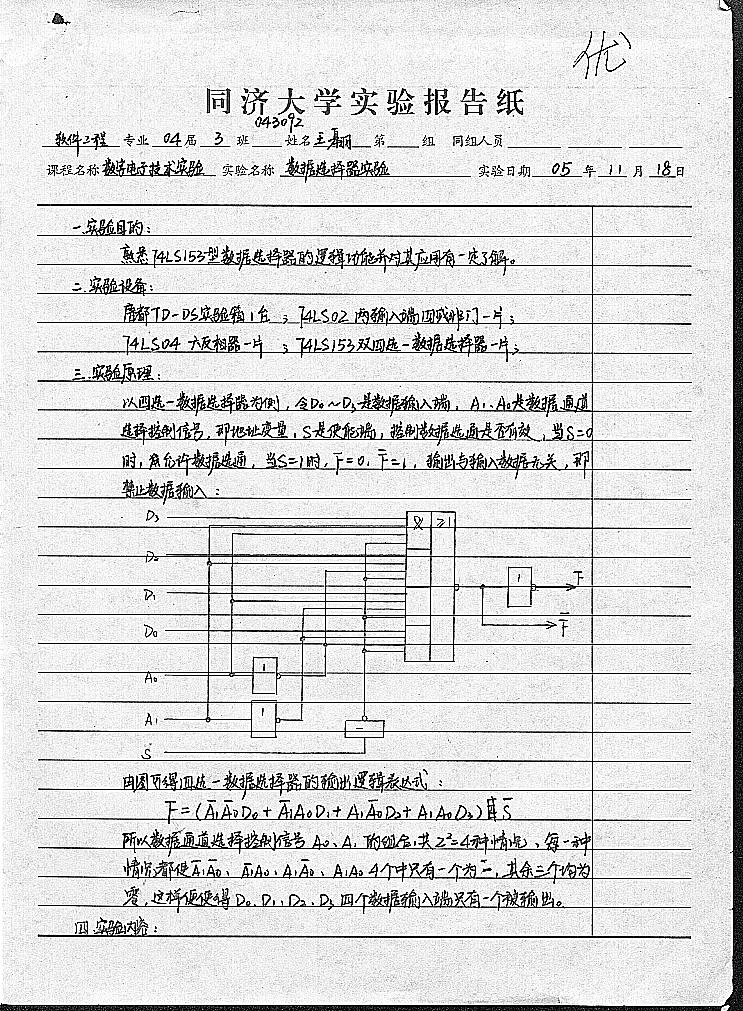 优
同济大学实验报告纸
043092
软件工程 专业 04 届 3 班 姓名 第 组 同组人员
课程名称 数字电子技术实验 实验名称 数据选择器实验 实验日期 05 年 11 月 18 日
一.实验目的:
熟悉74LS153型数据选择器的逻辑功能并对其应用有一定了解。
二.实验设备:
唐都TD-DS实验箱1台 ; 74LS02 两输入端四或非门一片;
74LS04 六反相器一片 ; 74LS153双四选一数据选择器一片;
三.实验原理:
以四选一数据选择器为例,令D₀~D₃是数据输入端,A₁、A₀是数据通道
选择控制信号,即地址变量,S是使能端,控制数据选通是否有效,当S=0
时,允许数据选通,当S=1时,F=0,F̅=1,输出与输入数据无关,即
禁止数据输入:
D₃
& ≥1
D₂
D₁
1
F
D₀
F̅
A₀
1
A₁
1
S
由图可得四选一数据选择器的输出逻辑表达式:
F=(A̅₁A̅₀D₀+A̅₁A₀D₁+A₁A̅₀D₂+A₁A₀D₃)S̅
所以数据通道选择控制信号A₀、A₁的组合,共2²=4种情况、每一种
情况都使A̅₁A̅₀、A̅₁A₀、A₁A̅₀、A₁A₀4个中只有一个为一,其余三个均为
零,这样便使得D₀、D₁、D₂、D₃四个数据输入端只有一个被输出。
四.实验内容: